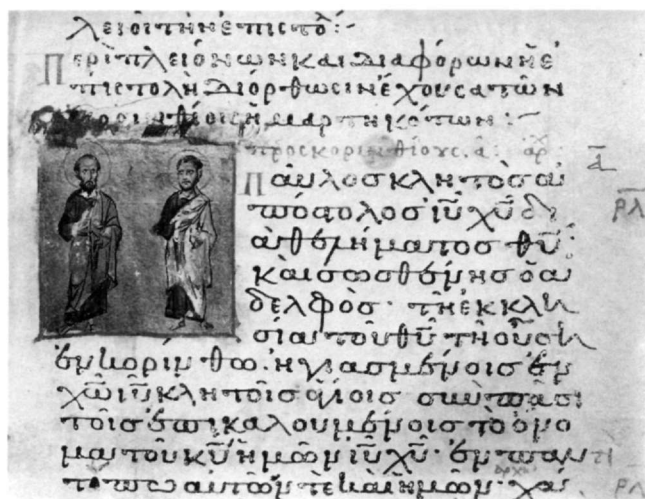 λει οἱ τὴν ἐπιστο
Περὶ πλειόνων καὶ διαφόρων ἡ ἐ
πιστολὴ διόρθωσιν ἔχουσα τῶν
ἡμαρτηκότων:
πρὸς κορινθίους. α:
Παῦλος κλητὸς ἀ
πόστολος ἰῦ χῦ δι
ὰ θελήματος θῦ
καὶ σωσθένης ὁ ἀ
δελφὸς· τῆ ἐκκλη
σία τοῦ θῦ τῆ οὔση
ἐν κορίνθω. ἡγιασμένοις ἐν
χῶ ἰῦ κλητοῖς ἁγίοις σὺν πᾶσι
τοῖς ἐπικαλουμένοις τὸ ὄνο
μα τοῦ κῦ ἡμῶν ἰῦ χῦ· ἐν παντὶ
τόπω αὐτῶν τὲ καὶ ἡμῶν· χά